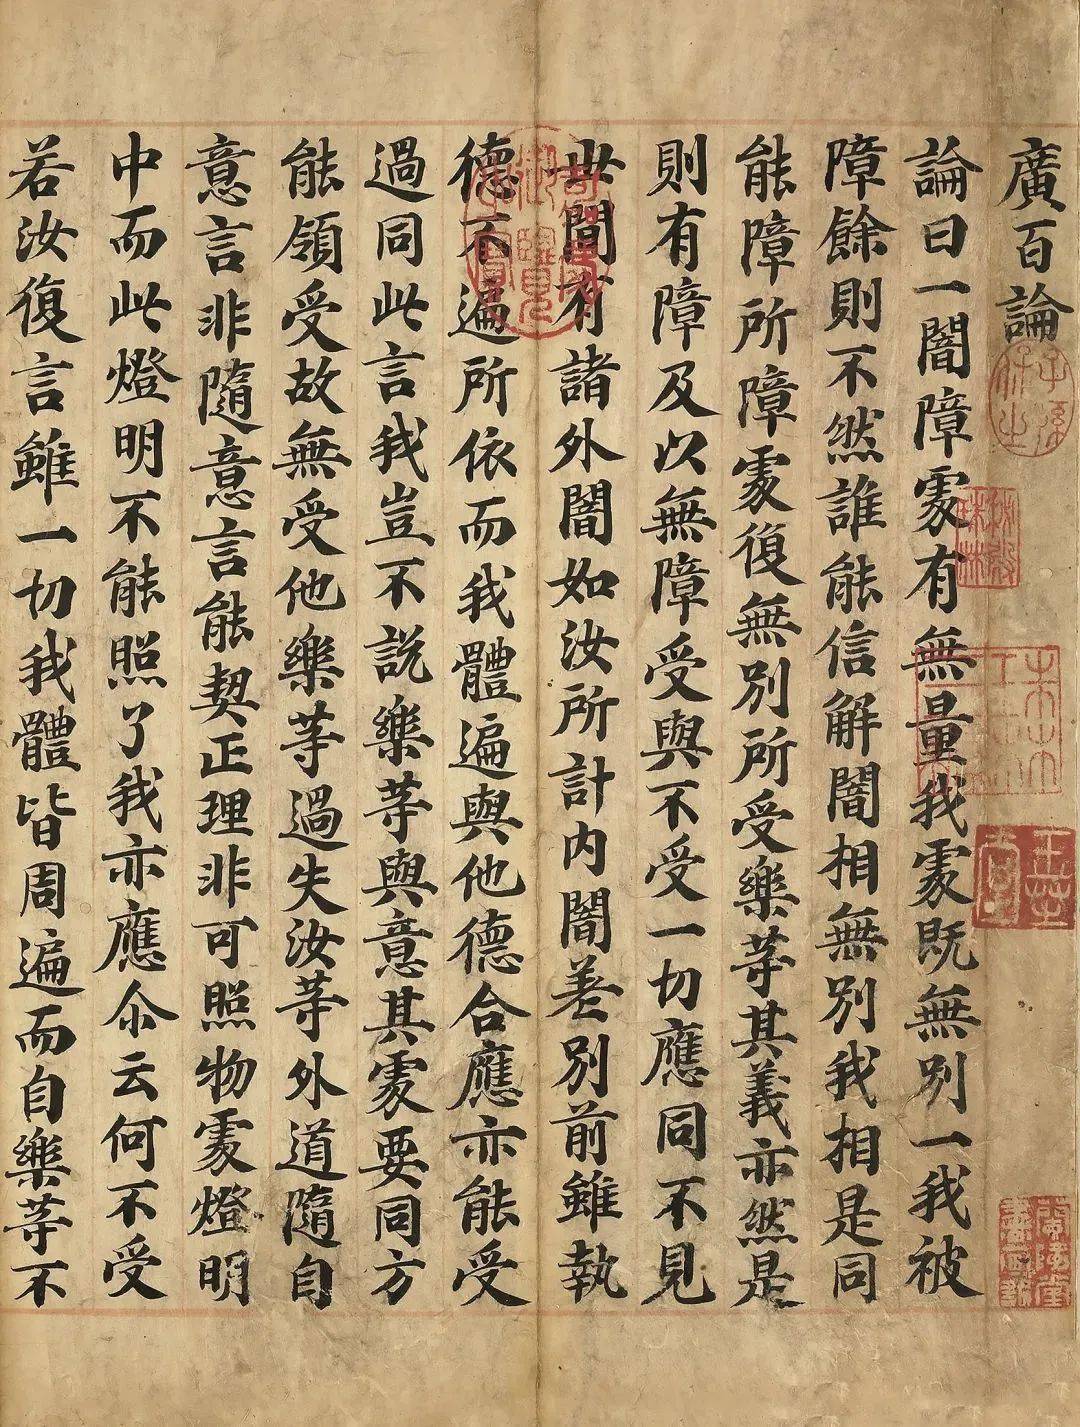 廣百論
論曰一闇障處有無量我處既無別一我被
障餘則不然誰能信解闇相無別我相是同
能障所障處復無別所受樂等其義亦然是
則有障及以無障受與不受一切應同不見
世間有諸外闇如汝所計內闇差別前雖執
德不遍所依而我體遍與他德合應亦能受
過同此言我豈不說樂等與意其處要同方
能領受故無受他樂等過失汝等外道隨自
意言非隨意言能契正理非可照物處燈明
中而此燈明不能照了我亦應尒云何不受
若汝復言雖一切我體皆周遍而自樂等不